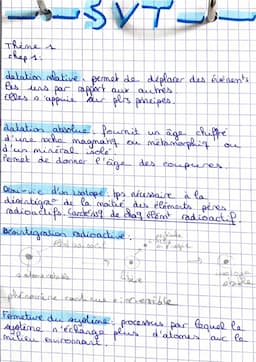 SVT
Thème 1
chap 1:
datation relative: permet de déplacer des événements
les uns par rapport aux autres
elles s'appuie sur plrs principes.
datation absolue: fournit un âge chiffré
d'une roche magmatq ou métamorphiq ou
d'un minéral isolé
Permet de donner l'âge des coupures.
Demi-vie d'un isotope: tps nécessaire à la
désintégrat° de la moitié des éléments pères
radioactifs. de chaq élément radioactif.
Désintégration radioactive:
stable
phénomène continu + irréversible
Fermeture du système: processus par lequel le
système n'échange plus d'atomes avec le
milieu environnant.